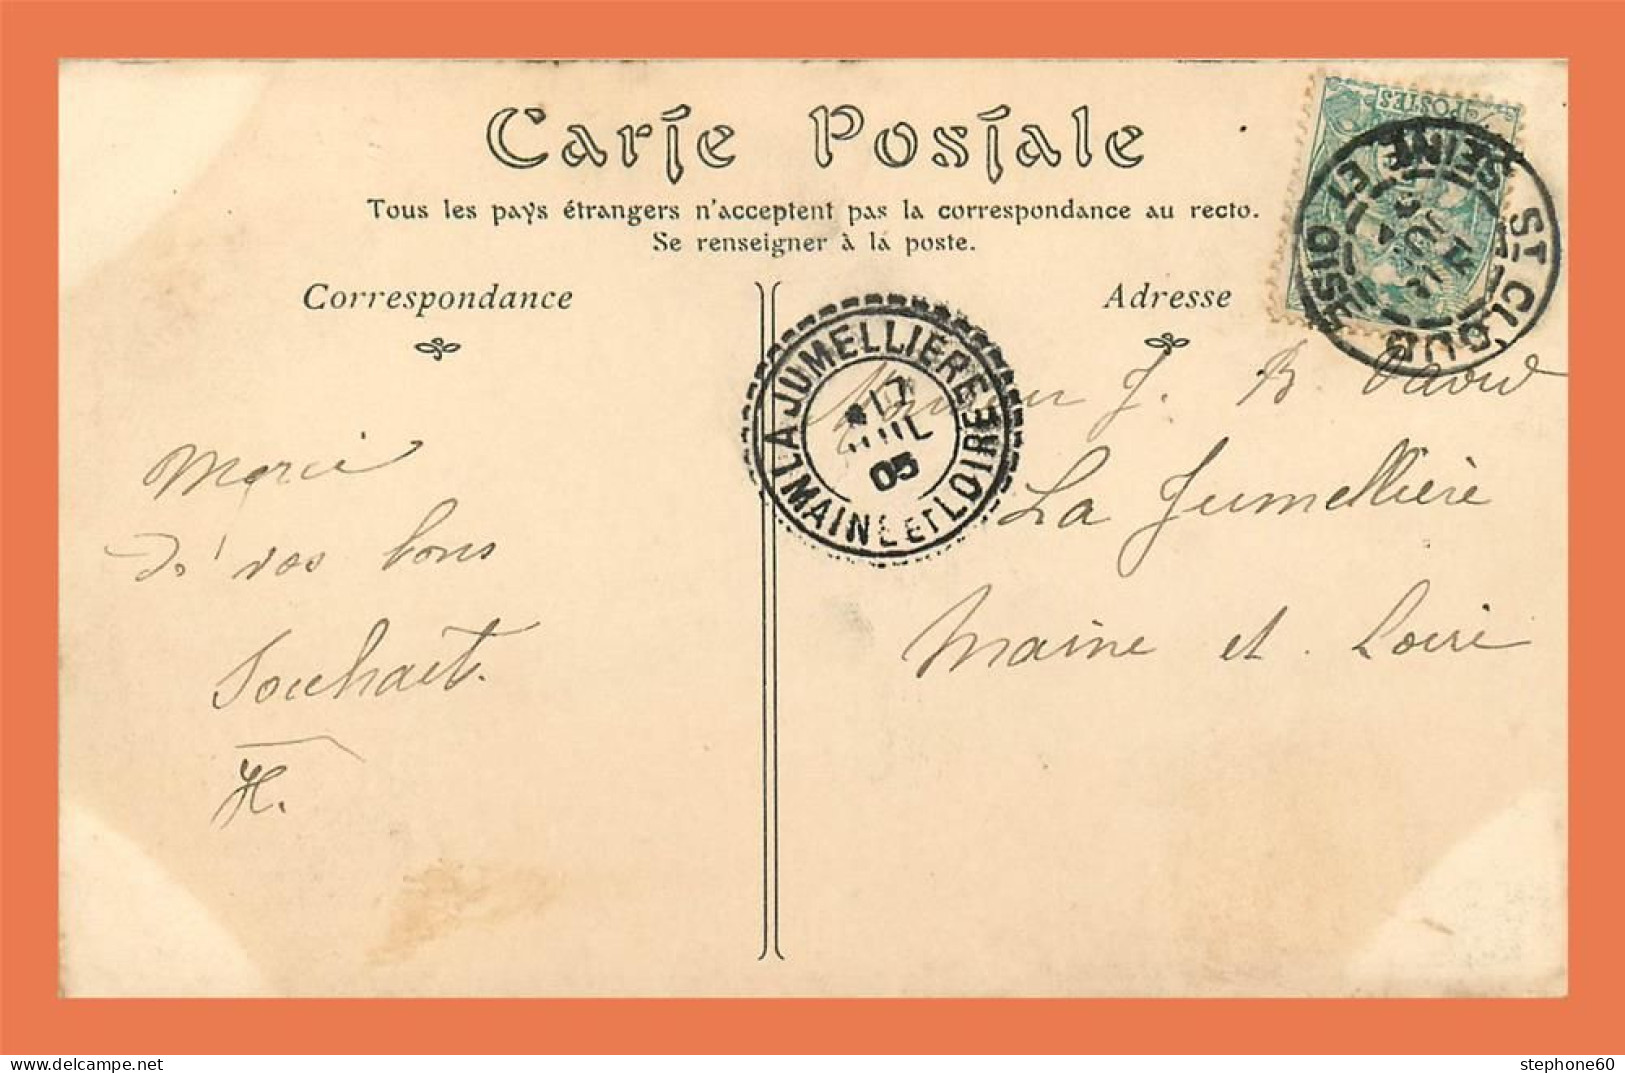 Carte Postale
Tous les pays étrangers n'acceptent pas la correspondance au recto.
Se renseigner à la poste.
Correspondance
Adresse
POSTES
ST CLOUD
SEINE ET OISE
JUIL
LA JUMELLIERE
17
JUIL
05
MAINE ET LOIRE
Merci
de vos bons
Souhaits.
H.
Monsieur J. B. David
La Jumellière
Maine et Loire
stephone60